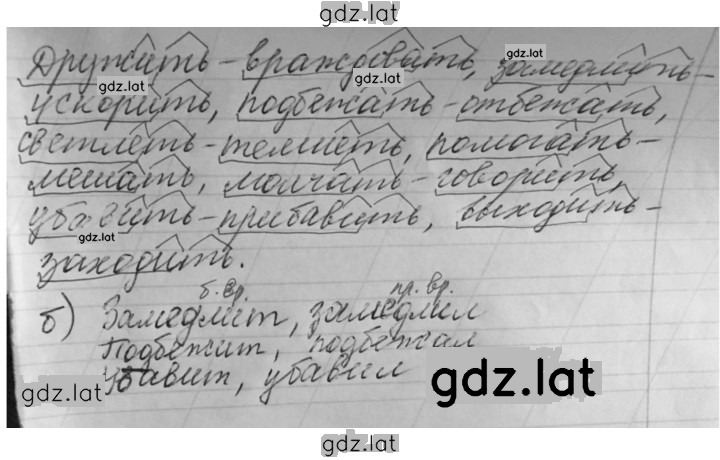 gdz.lat
Дружить - враждовать, замедлить -
ускорить, подбежать - отбежать,
светлеть - темнеть, помогать -
мешать, молчать - говорить,
убавить - прибавить, выходить -
заходить.
б. вр. пр. вр.
б) Замедлит, замедлил
Подбежит, подбежал
Убавит, убавил
gdz.lat
gdz.lat
gdz.lat
gdz.lat
gdz.lat
gdz.lat
gdz.lat